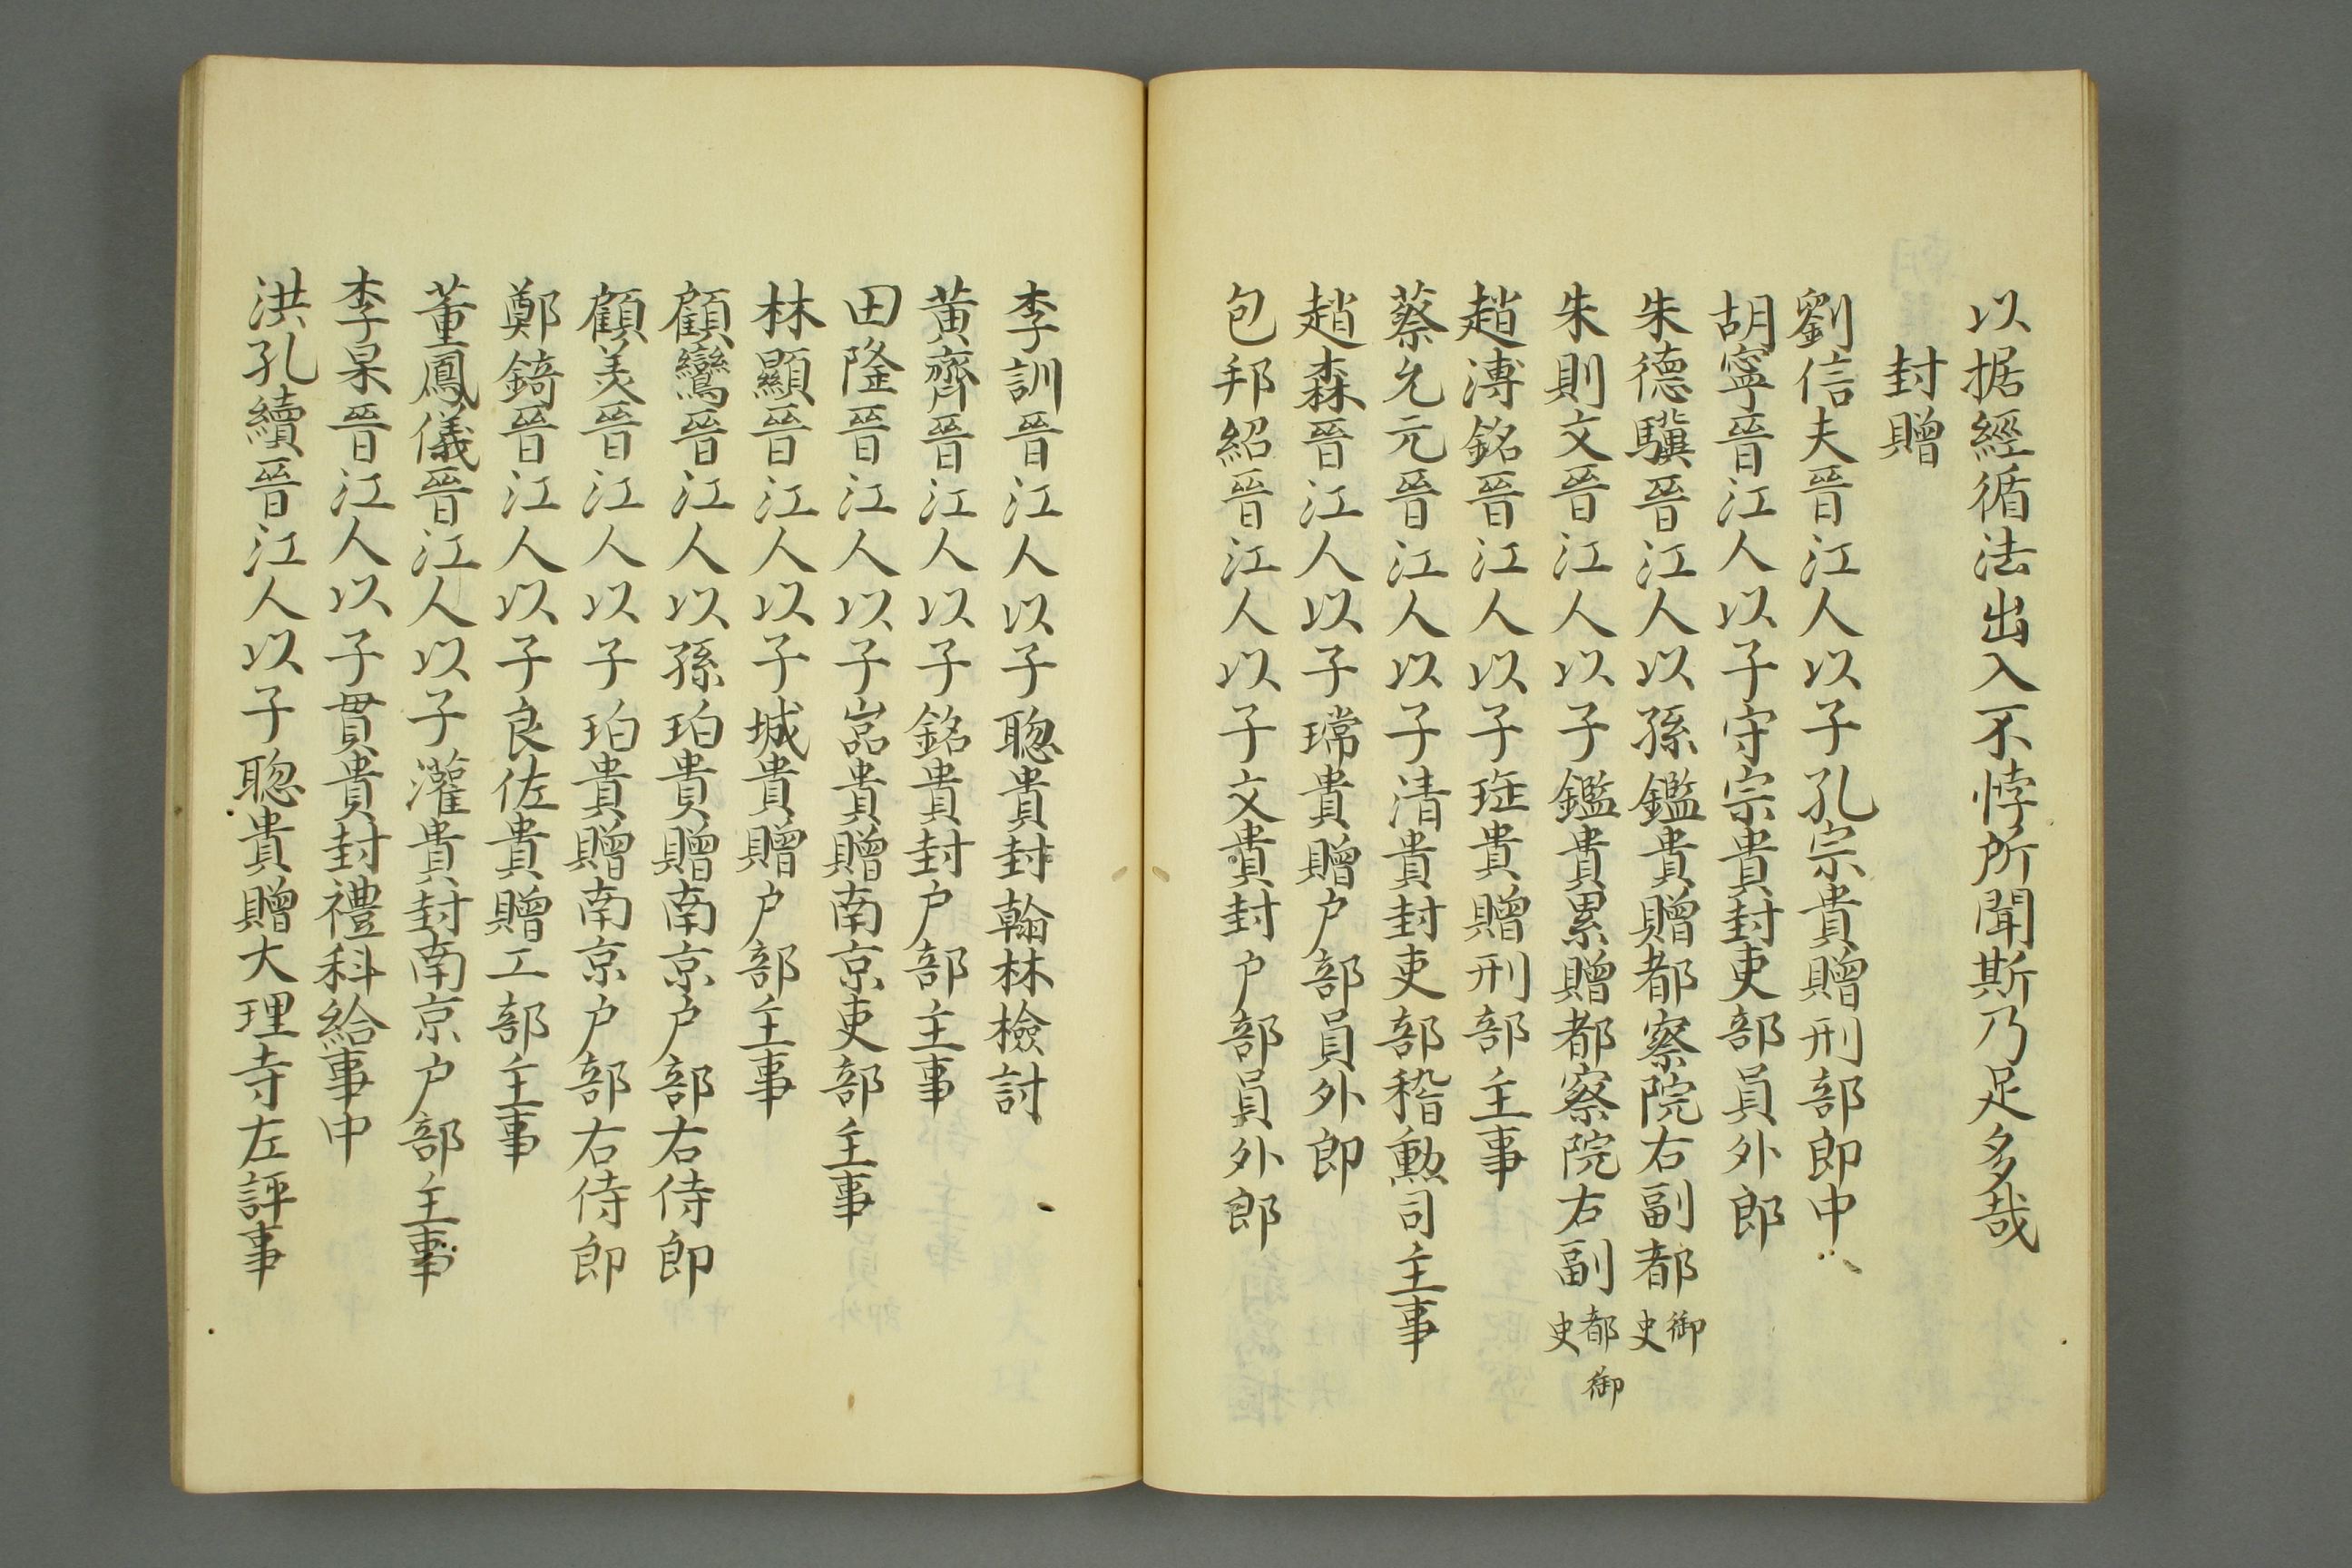 以据經循法出入不悖所聞斯乃足多哉
封贈
劉信夫晉江人以子孔宗貴贈刑部郎中
胡寧晉江人以子守宗貴封吏部員外郎
朱德驥晉江人以孫鑑貴贈都察院右副都御史
朱則文晉江人以子鑑貴累贈都察院右副都御史
趙溥銘晉江人以子珽貴贈刑部主事
蔡允元晉江人以子清貴封吏部稽勳司主事
趙森晉江人以子瑺貴贈户部員外郎
包邦紹晉江人以子文貴封户部員外郎
李訓晉江人以子聰貴封翰林檢討
黃齊晉江人以子銘貴封户部主事
田隆晉江人以子嵓貴贈南京吏部主事
林顯晉江人以子城貴贈户部主事
顧鸞晉江人以孫珀貴贈南京户部右侍郎
顧美晉江人以子珀貴贈南京户部右侍郎
鄭錡晉江人以子良佐貴贈工部主事
董鳳儀晉江人以子灌貴封南京户部主事
李杲晉江人以子貫貴封禮科給事中
洪孔續晉江人以子聰貴贈大理寺左評事